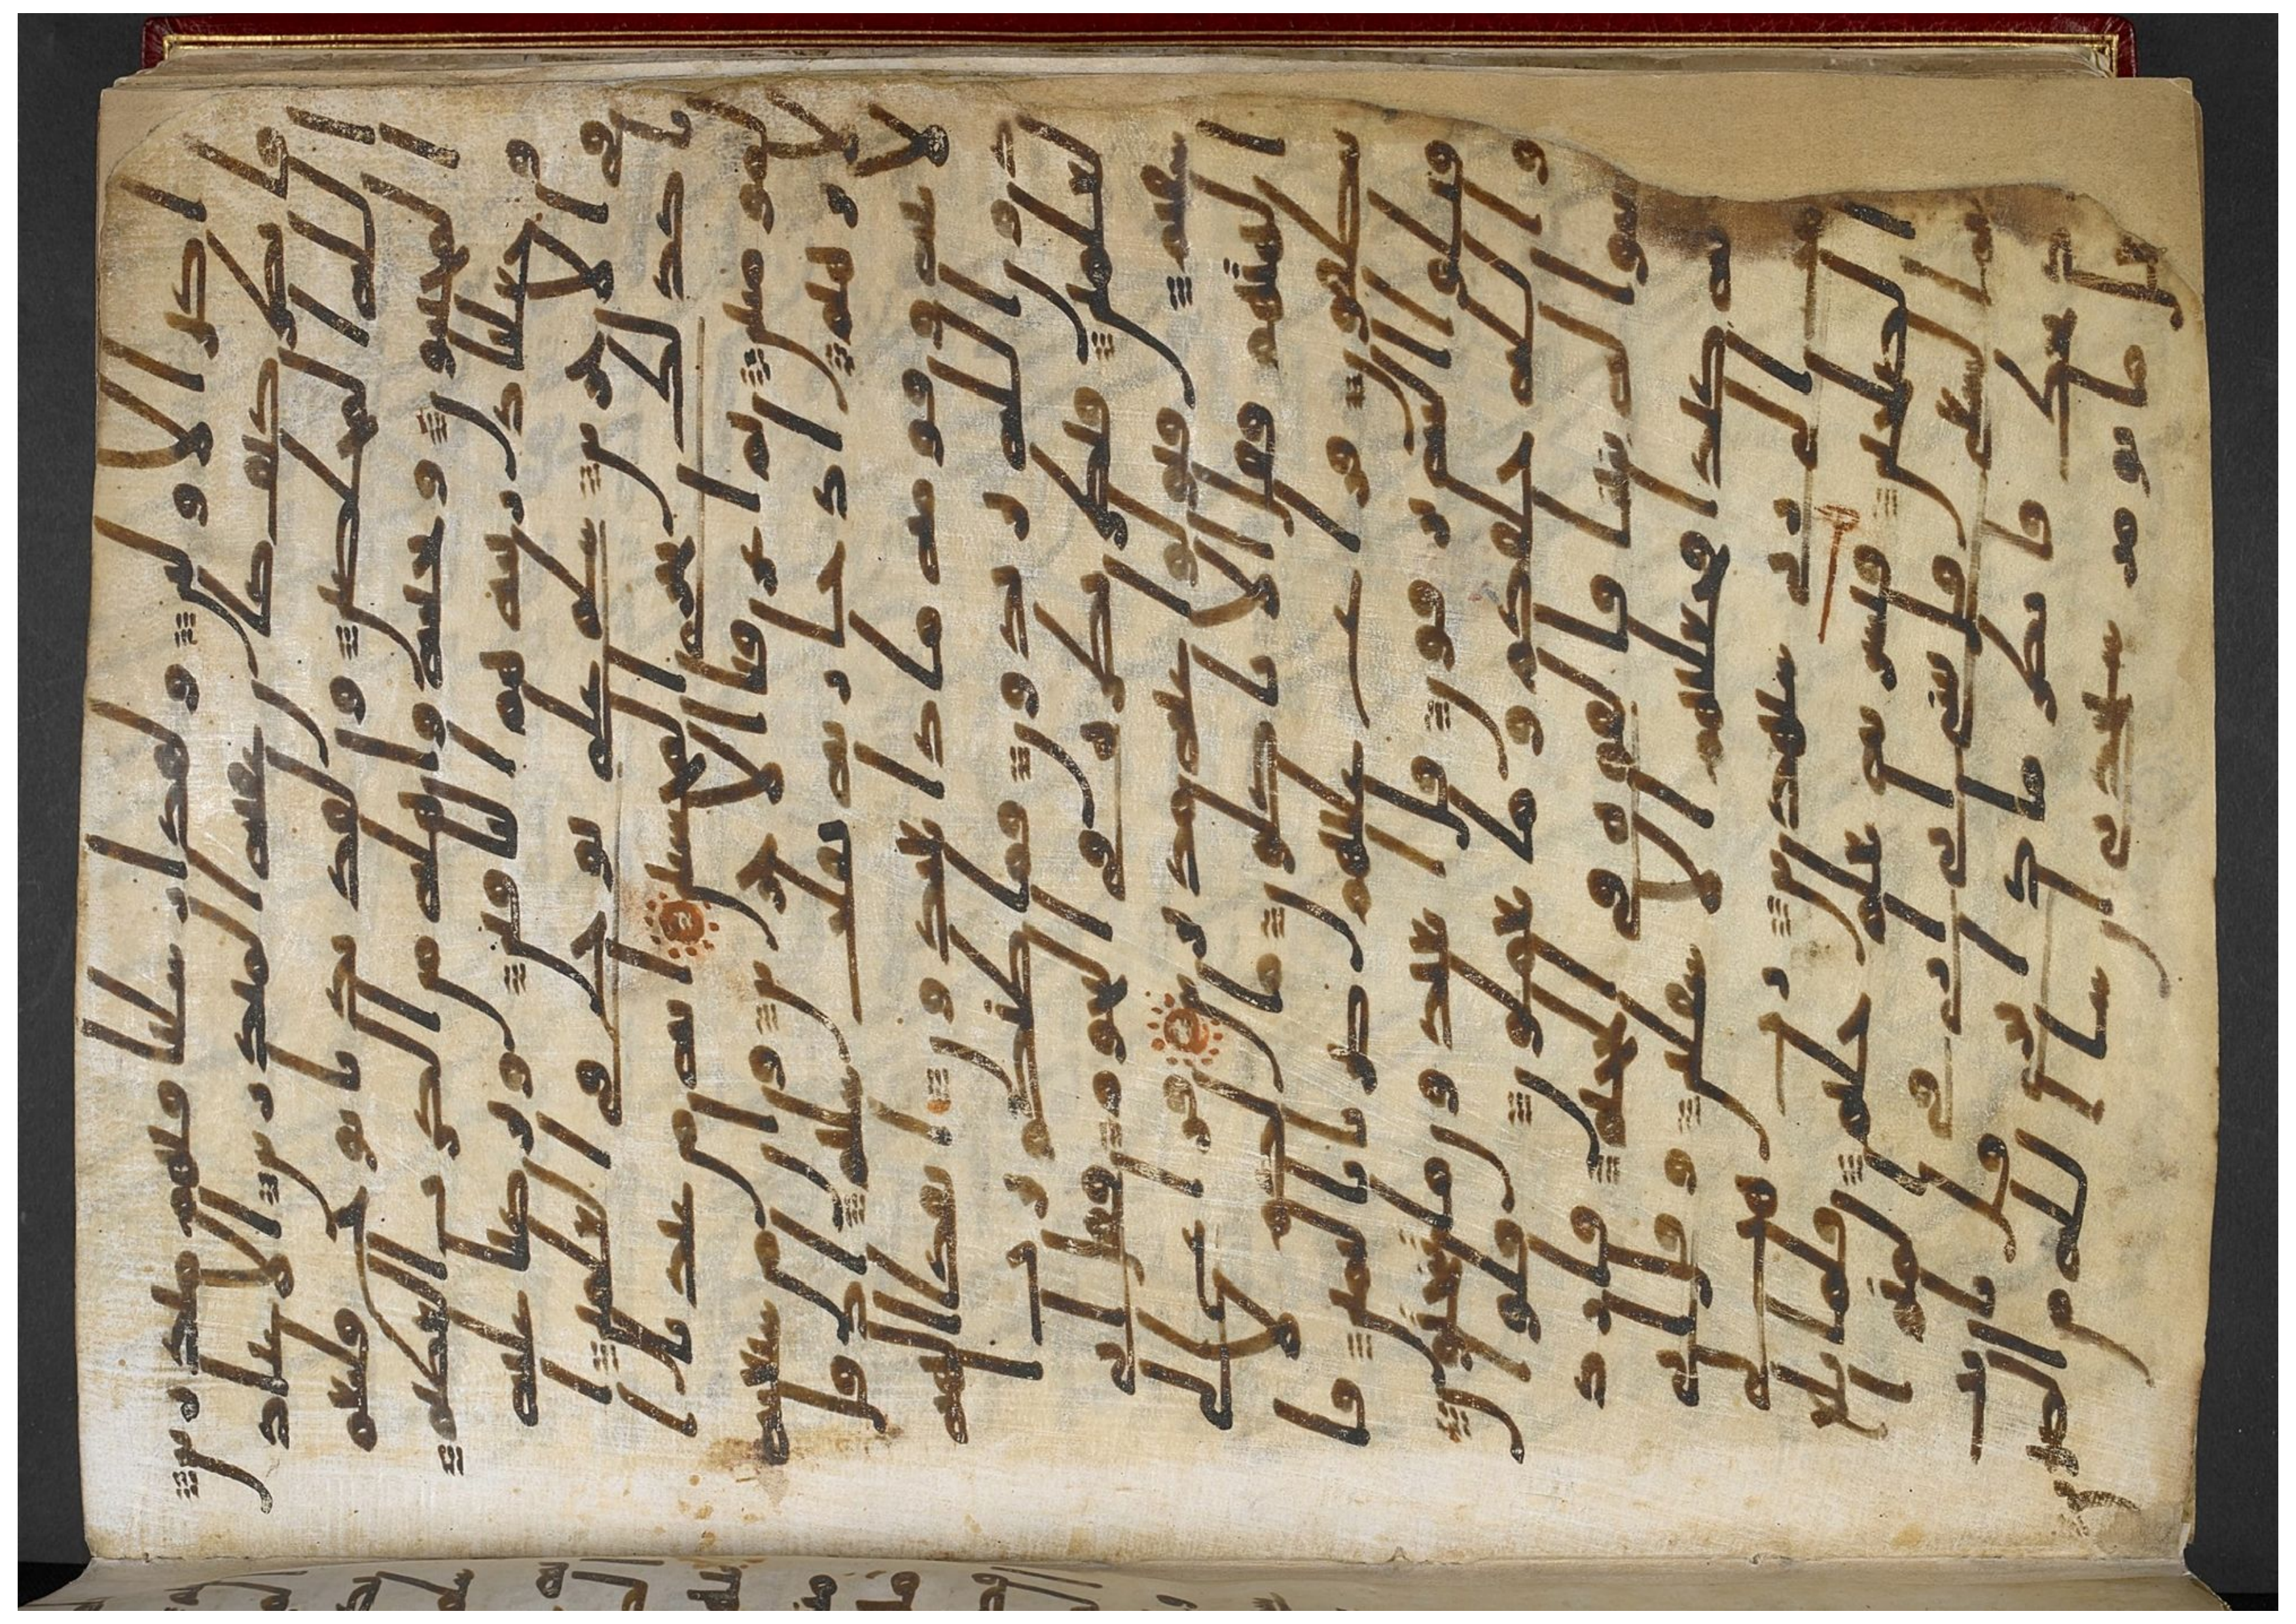 اكثر الاولين ولقد ارسلنا فيهم منذرين
فانظر كيف كان عقبه المنذرين الا عباد
الله المخلصين ولقد نادينا نوح فلنعم
المجيبون ونجينه واهله من الكرب العظيم
وجعلنا ذريته هم الباقين وتركنا عليه
في الاخرين سلم على نوح في العلمين ا
نا كذلك نجزي المحسنين انه من عبادنا ا
لمومنين ثم اغرقنا الاخرين وان من شيعته
لابرهيم اذ جا ربه بقلب سليم اذ قال
لابيه وقومه ماذا تعبدون ائفكا الهه
دون الله تريدون فما ظنكم برب ا
لعلمين فنظر نظره في النجوم فقال اني
سقيم فتولوا عنه مدبرين فراغ الى
الهتهم فقال الا تاكلون ما لكم لا
تنطقون فراغ عليهم ضربا باليمين فا
قبلوا اليه يزفون قال اتعبدون ما تنحتون
والله خلقكم وما تعملون قالوا
ابنوا له بنينا فالقوه في الجحيم فاراد
وا به كيدا فجعلنهم الاسفلين وقال اني
ذاهب الى ربي سيهدين رب هب لي
من الصلحين فبشرنه بغلم حليم فلما بلغ
معه السعي قال يبني اني ارى في المنم ا
ني اذبحك فانظر ماذا ترى قال يابت
افعل ما تومر ستجدني ان شا الله من الصبرين